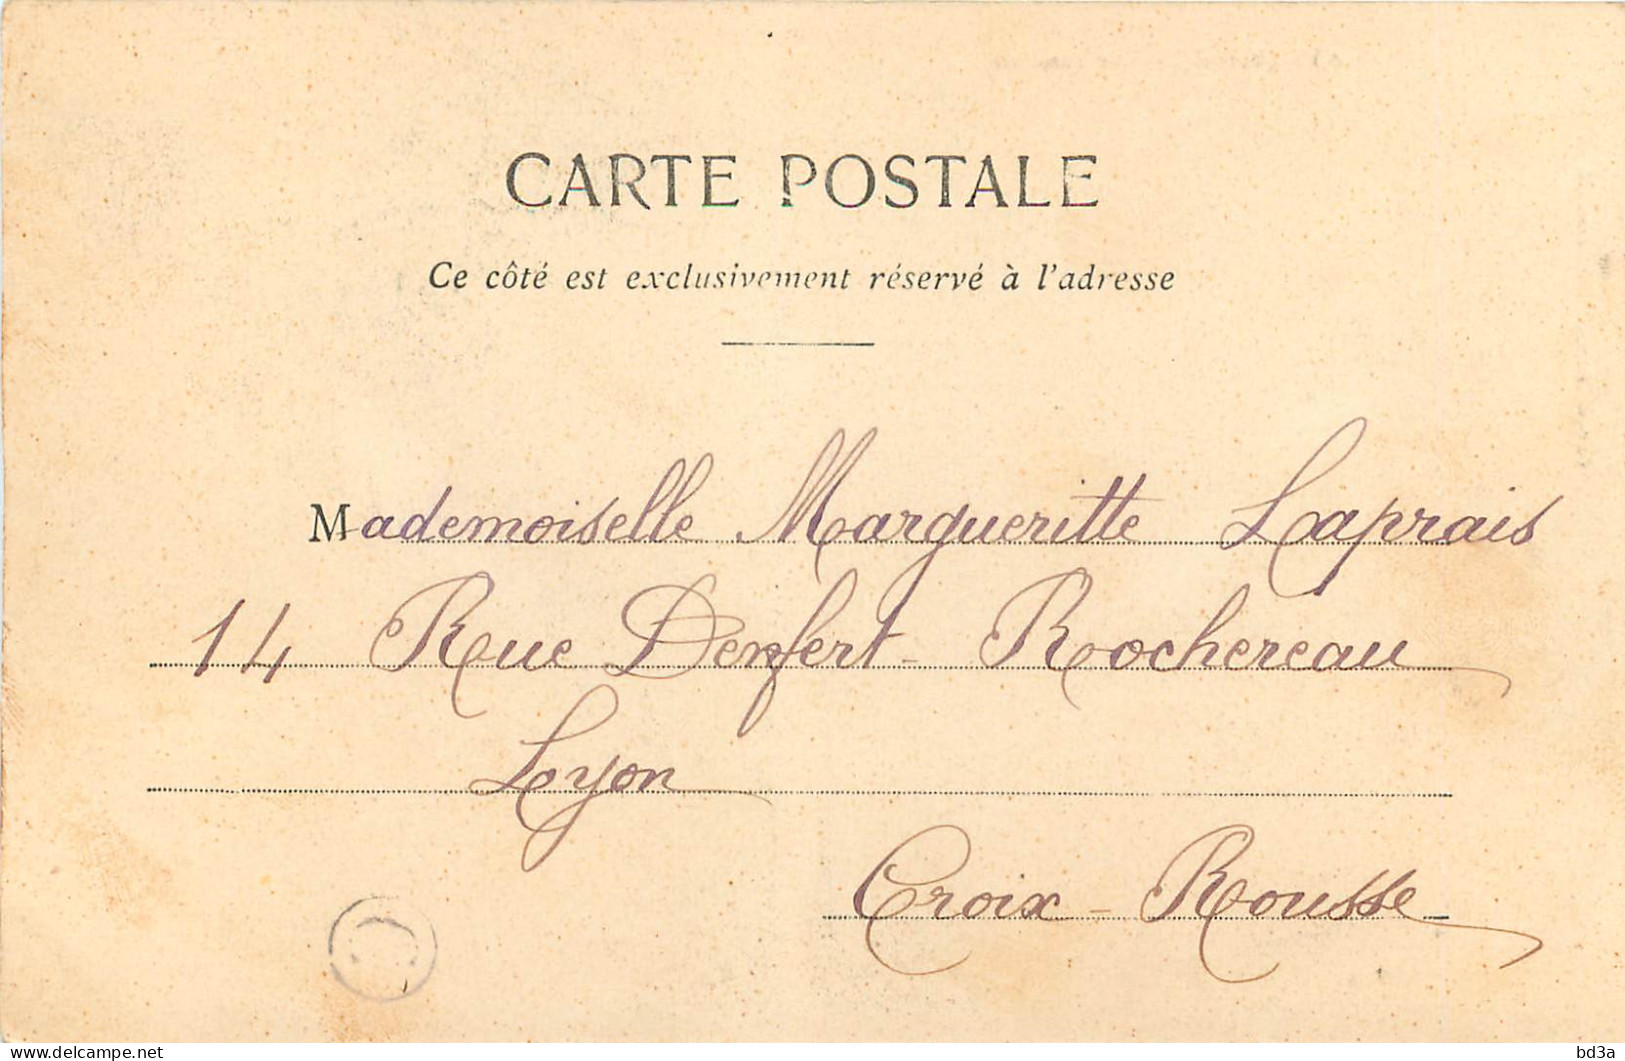 CARTE POSTALE
Ce côté est exclusivement réservé à l'adresse
Mademoiselle Margueritte Laprais
14 Rue Denfert-Rochereau
Lyon
Croix-Rousse
www.delcampe.net
bd3a